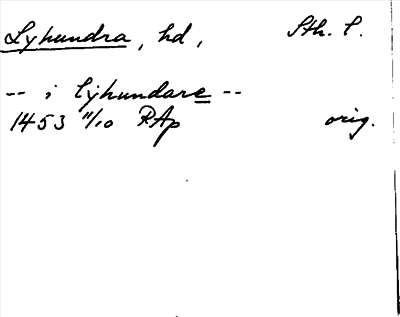 Lyhundra, hd, Sth. l.
-- i lijhundare --
1453 11/10 RAp orig.